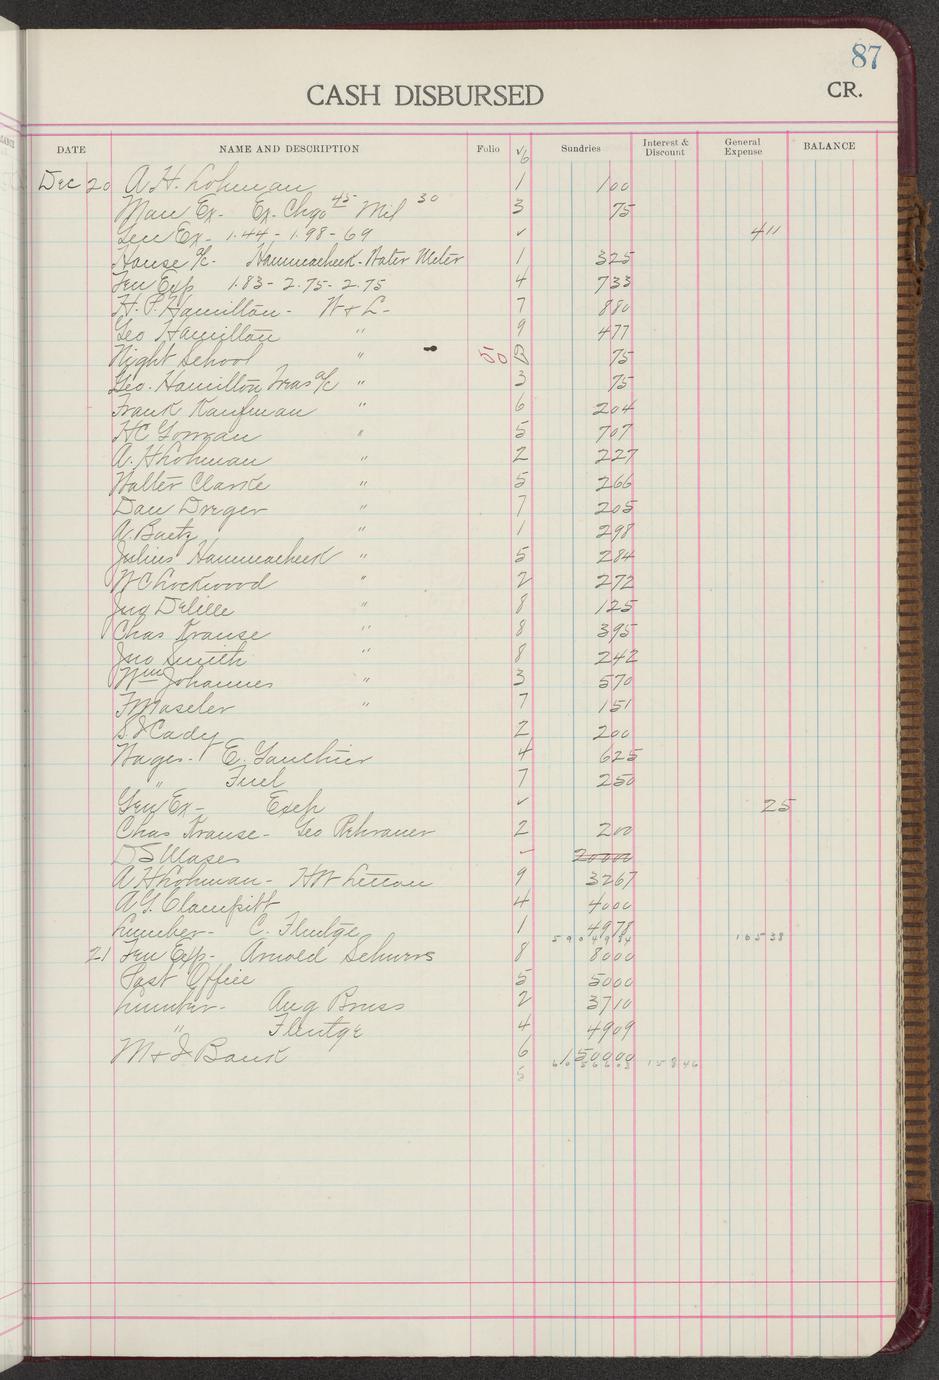 87
CASH DISBURSED CR.
DATE NAME AND DESCRIPTION Folio √6 Sundries Interest & Discount General Expense BALANCE
Dec 20 A. H. Lohman 1 100
Man Ex- Ex. Chgo 45 Mil 30 3 75
Gen Ex- 1.44 - 1.98 - 69 ✓ 411
House a/c- Hammacheek- Water Meter 1 325
Gen Exp 1.83 - 2.75 - 2.75 4 733
H. P. Hamilton- W & L- 7 880
Geo Hamilton " 9 477
Night School " 50 75
Geo. Hamilton Treas a/c " 3 75
Frank Kaufman " 6 204
HC Gorman " 5 707
A. H Lohman " 2 227
Walter Clarke " 5 266
Dan Dreger " 7 205
A. Baetz " 1 298
Julius Hammacheek " 5 284
W C Lockwood " 2 272
Jno Delille " 8 125
Chas Krause " 8 395
Jno Smith " 8 242
Wm Johannes " 3 570
F Maseler " 7 151
S. J Cady 2 200
Wages- E. Gauthier 4 625
" Fuel 7 250
Gen Ex- Exch ✓ 25
Chas Krause- Geo Rehrauer 2 200
D S Moses - 20000
A H Lohman- HW 9 3267
A G. Clampitt 4 4000
Lumber- C. Flentge 1 4978
5904934 16538
21 Gen Exp- Arnold Schwers 8 8000
Post Office 5 5000
Lumber- Aug Bruss 2 3710
" Flentge 4 4909
M & J Bank 6 150000
5 6056603 15846